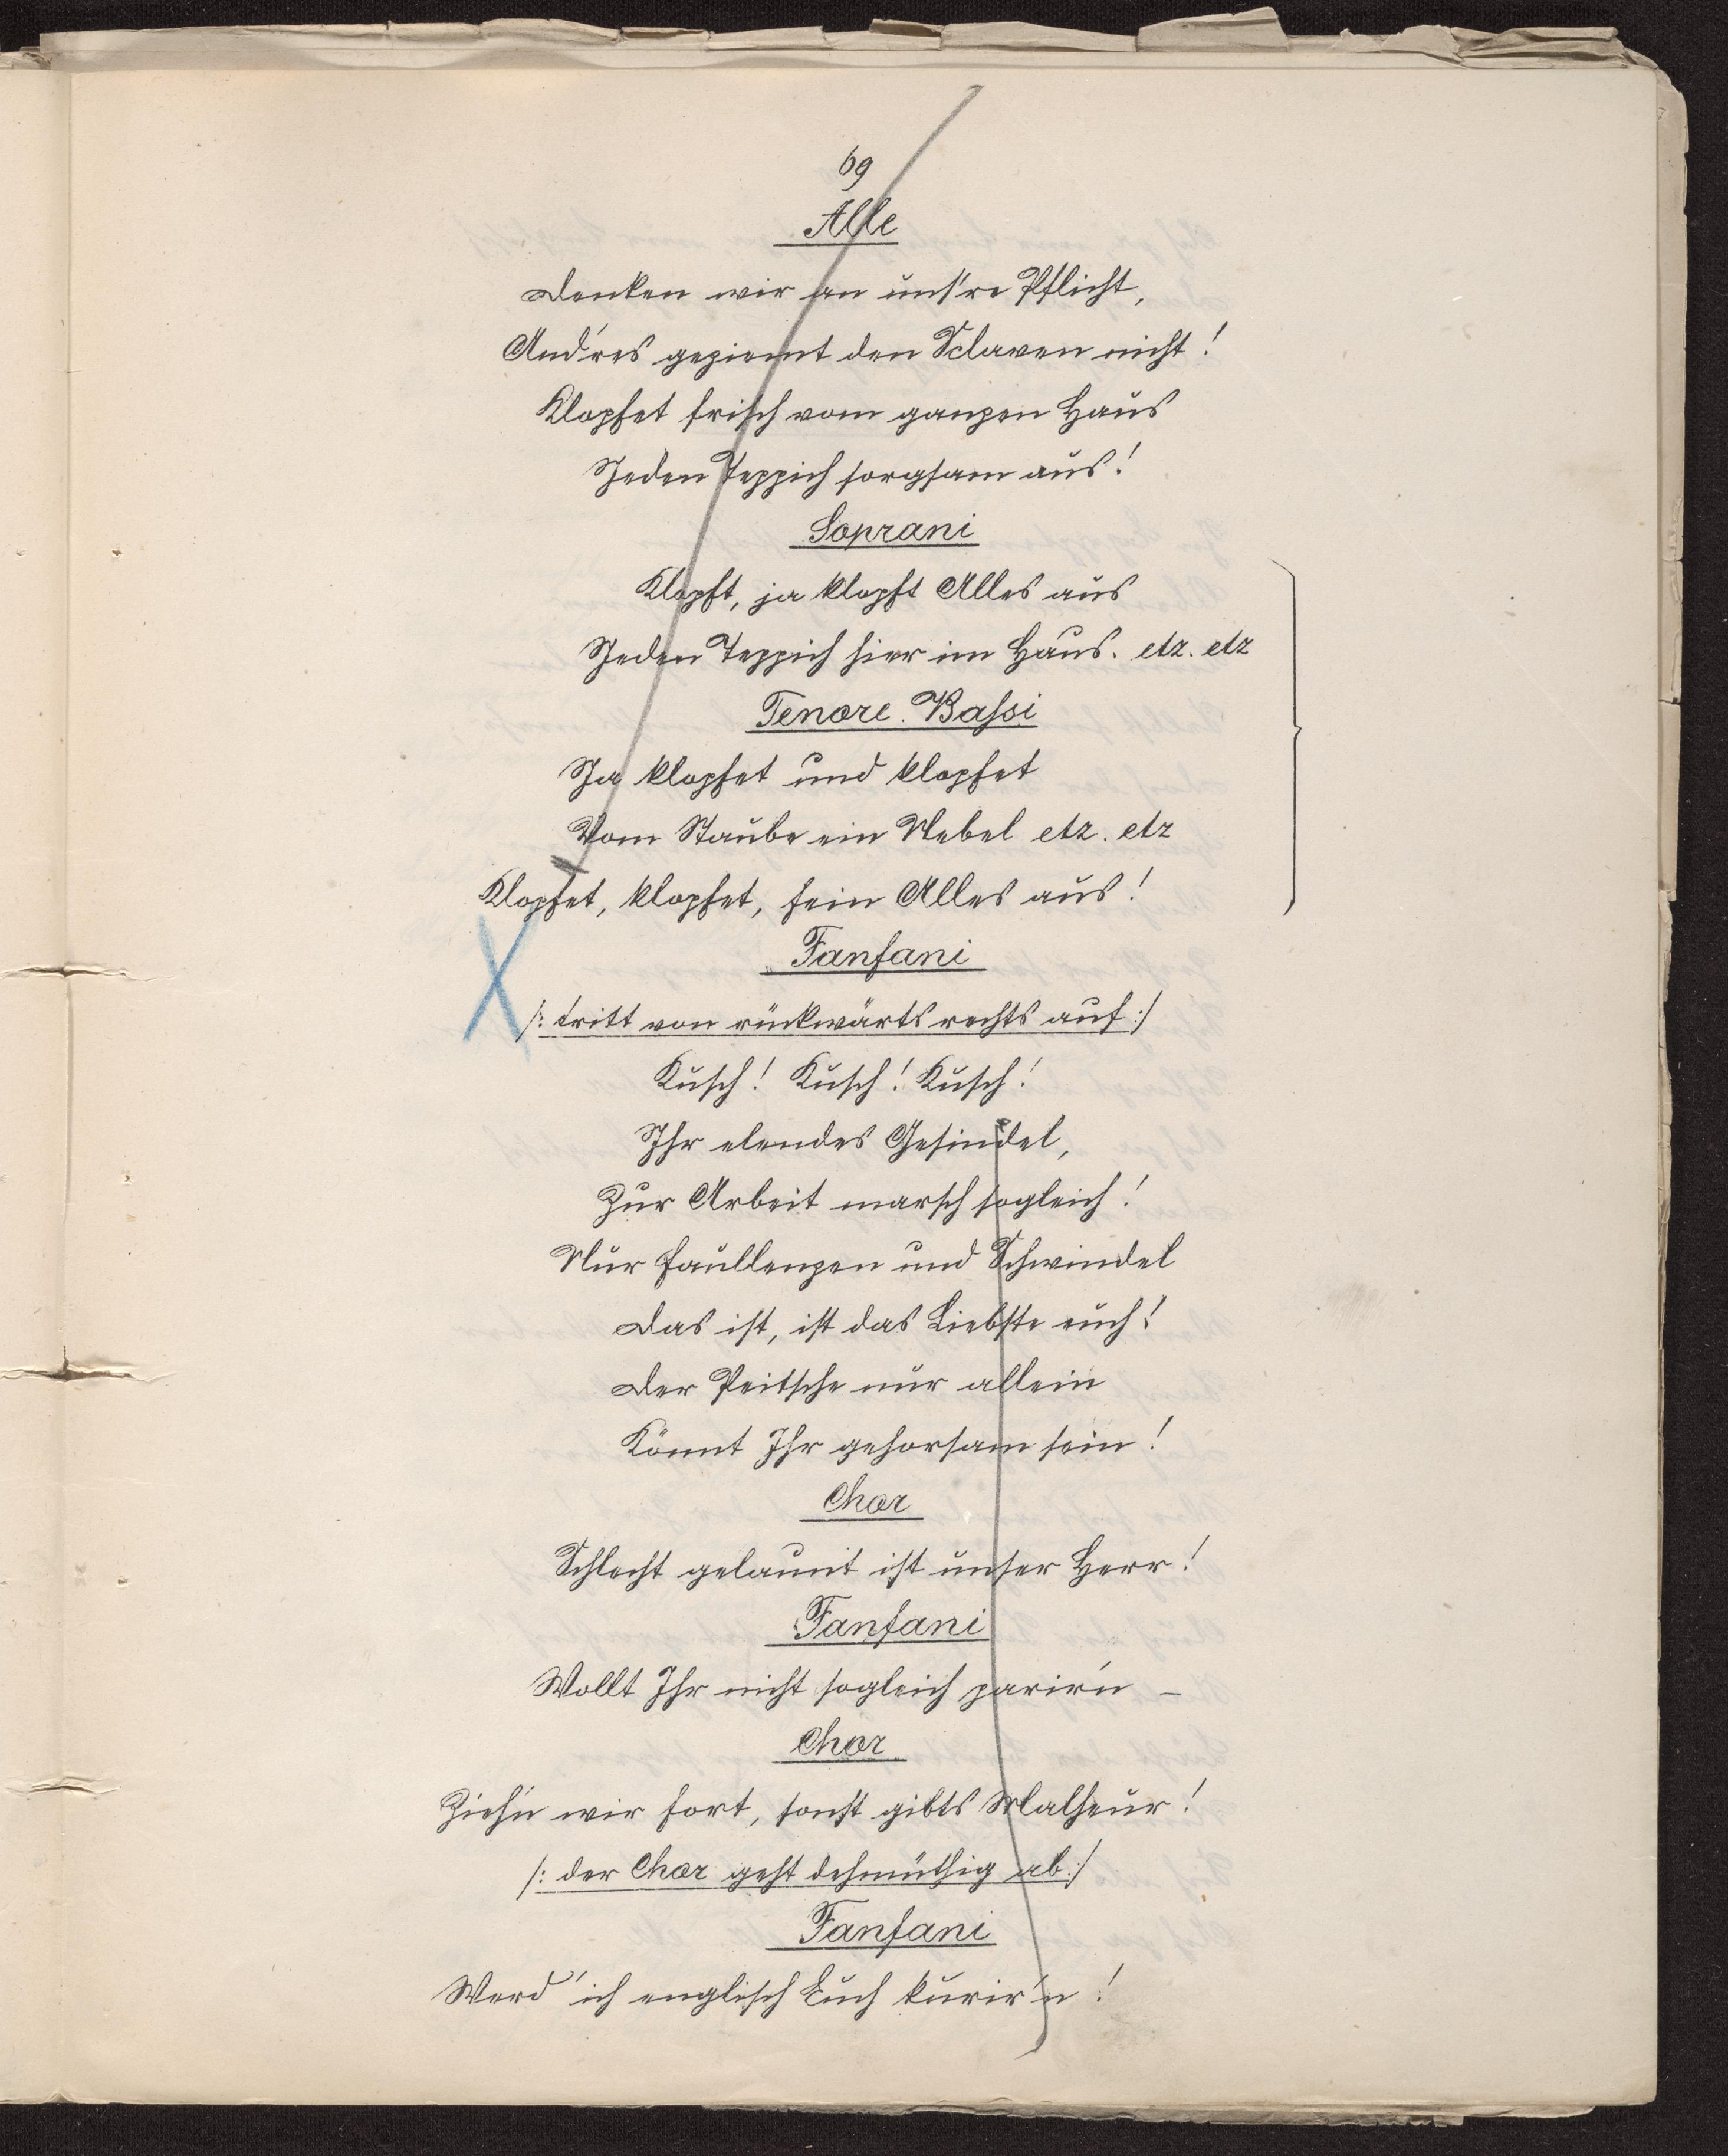 69
Alle
Denken wir an uns're Pflicht,
And'res geziemt den Sclaven nicht!
Klopfet frisch vom ganzen Haus
Jeden Teppich sorgsam aus!
Soprani
Klopft, ja klopft Alles aus
Jeden Teppich hier im Haus. etz. etz
Tenore. Bassi
Ja klopfet und klopfet
Vom Staube ein Nebel etz. etz
Klopfet, klopfet, fein Alles aus!
Fanfani
/: tritt von rückwärts rechts auf :/
Kusch! Kusch! Kusch!
Ihr elendes Gesindel,
Zur Arbeit marsch sogleich!
Nur faullenzen und Schwindel
Das ist, ist das Liebste euch!
Der Peitsche nur allein
Könnt Ihr gehorsam sein!
Chor
Schlecht gelaunt ist unser Herr!
Fanfani
Wollt Ihr nicht sogleich parir'n –
Chor
Zieh'n wir fort, sonst gibts Malheur!
/: der Chor geht dehmüthig ab :/
Fanfani
Werd' ich englisch Euch kurir'n!